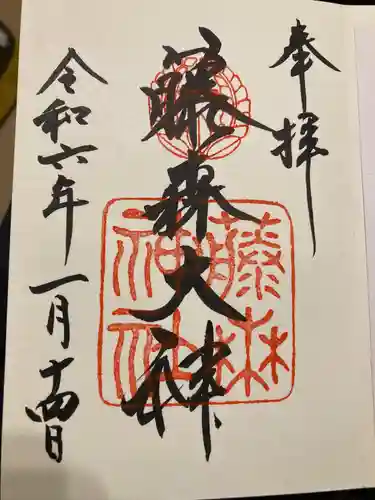 奉拝
藤森大神
藤森
神社
令和六年
一月十四日